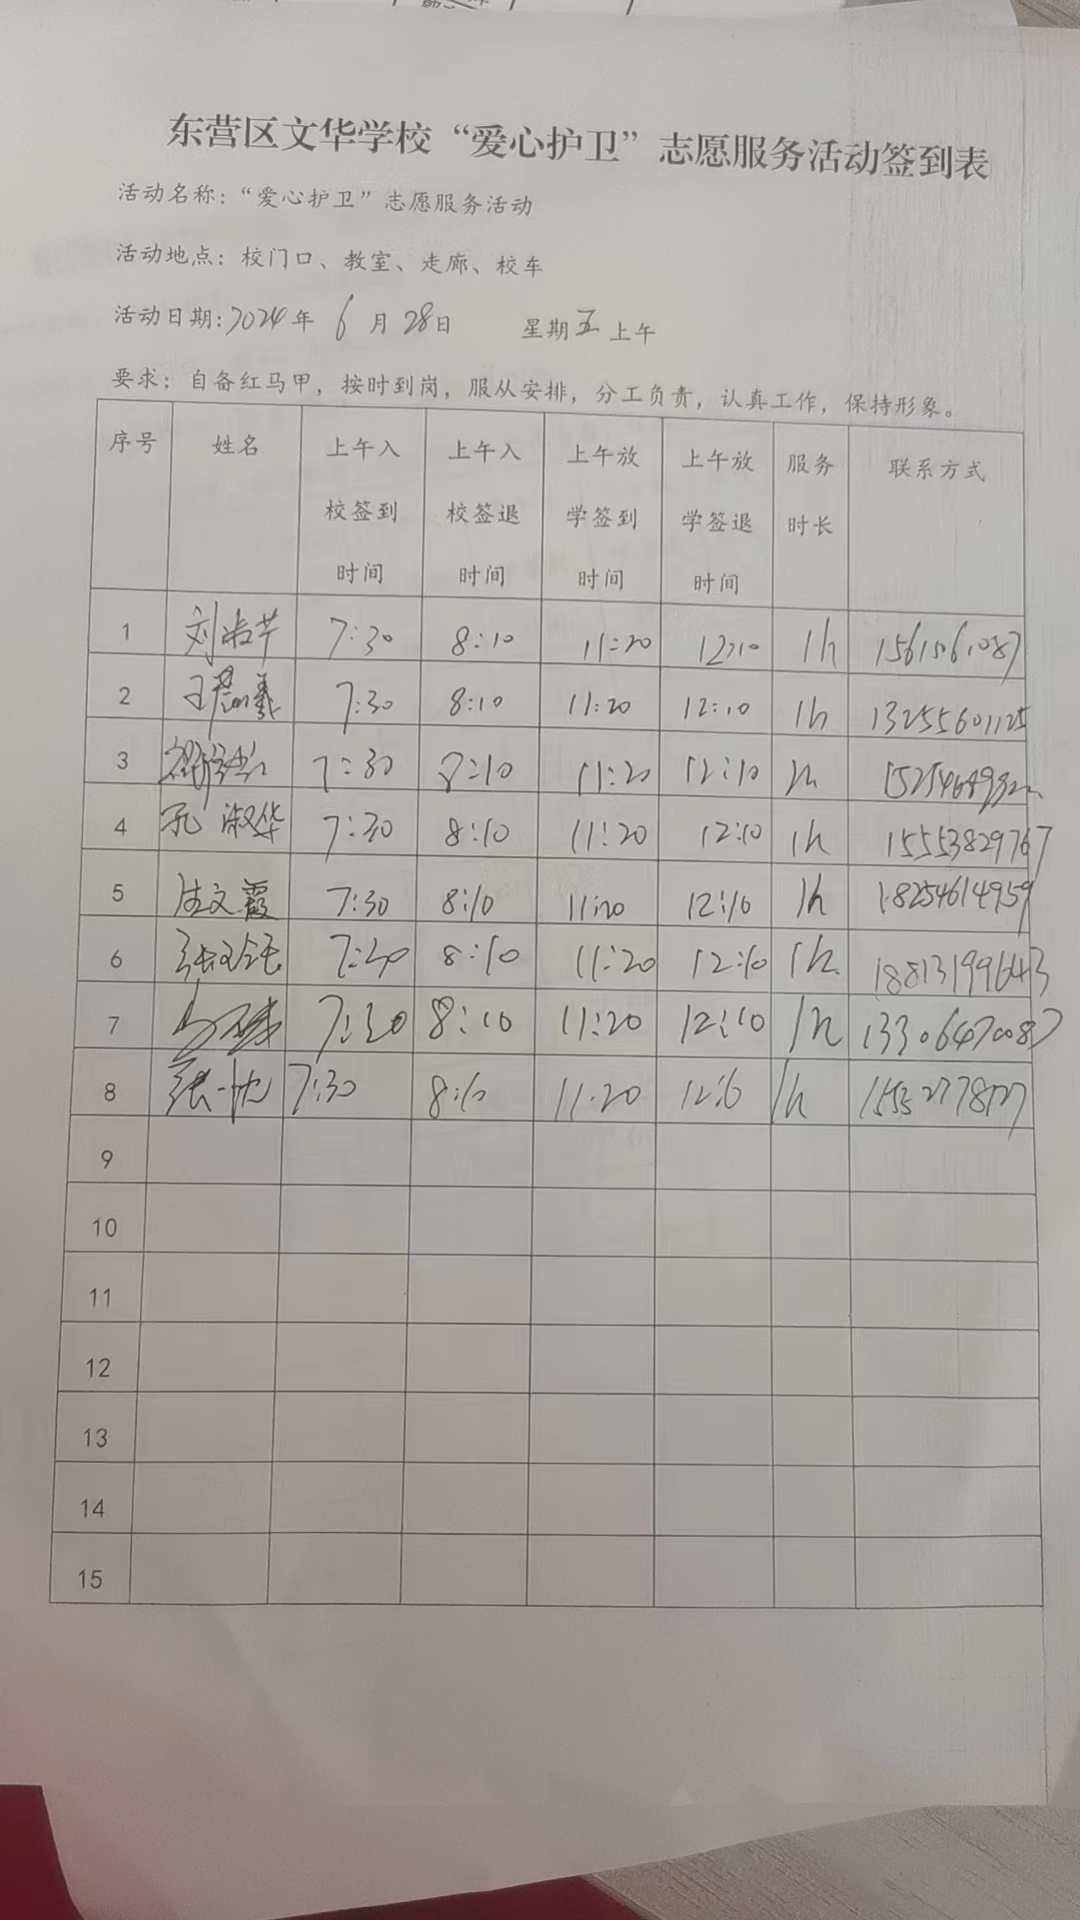 东营区文华学校“爱心护卫”志愿服务活动签到表
活动名称：“爱心护卫”志愿服务活动
活动地点：校门口、教室、走廊、校车
活动日期：2024年 6月28日 星期五上午
要求：自备红马甲，按时到岗，服从安排，分工负责，认真工作，保持形象。
序号 姓名 上午入校签到时间 上午入校签退时间 上午放学签到时间 上午放学签退时间 服务时长 联系方式
1 7:30 8:10 11:20 12:10 1h
2 7:30 8:10 11:20 12:10 1h 13255601125
3 7:30 8:10 11:20 12:10
4 孔淑华 7:30 8:10 11:20 12:10 1h 15553829767
5 7:30 8:10 11:20 12:10 1h 18254614959
6 7:30 8:10 11:20 12:10 1h 18813199643
7 7:30 8:10 11:20 12:10 1h 13306470087
8 7:30 8:10 11:20 1h
9
10
11
12
13
14
15